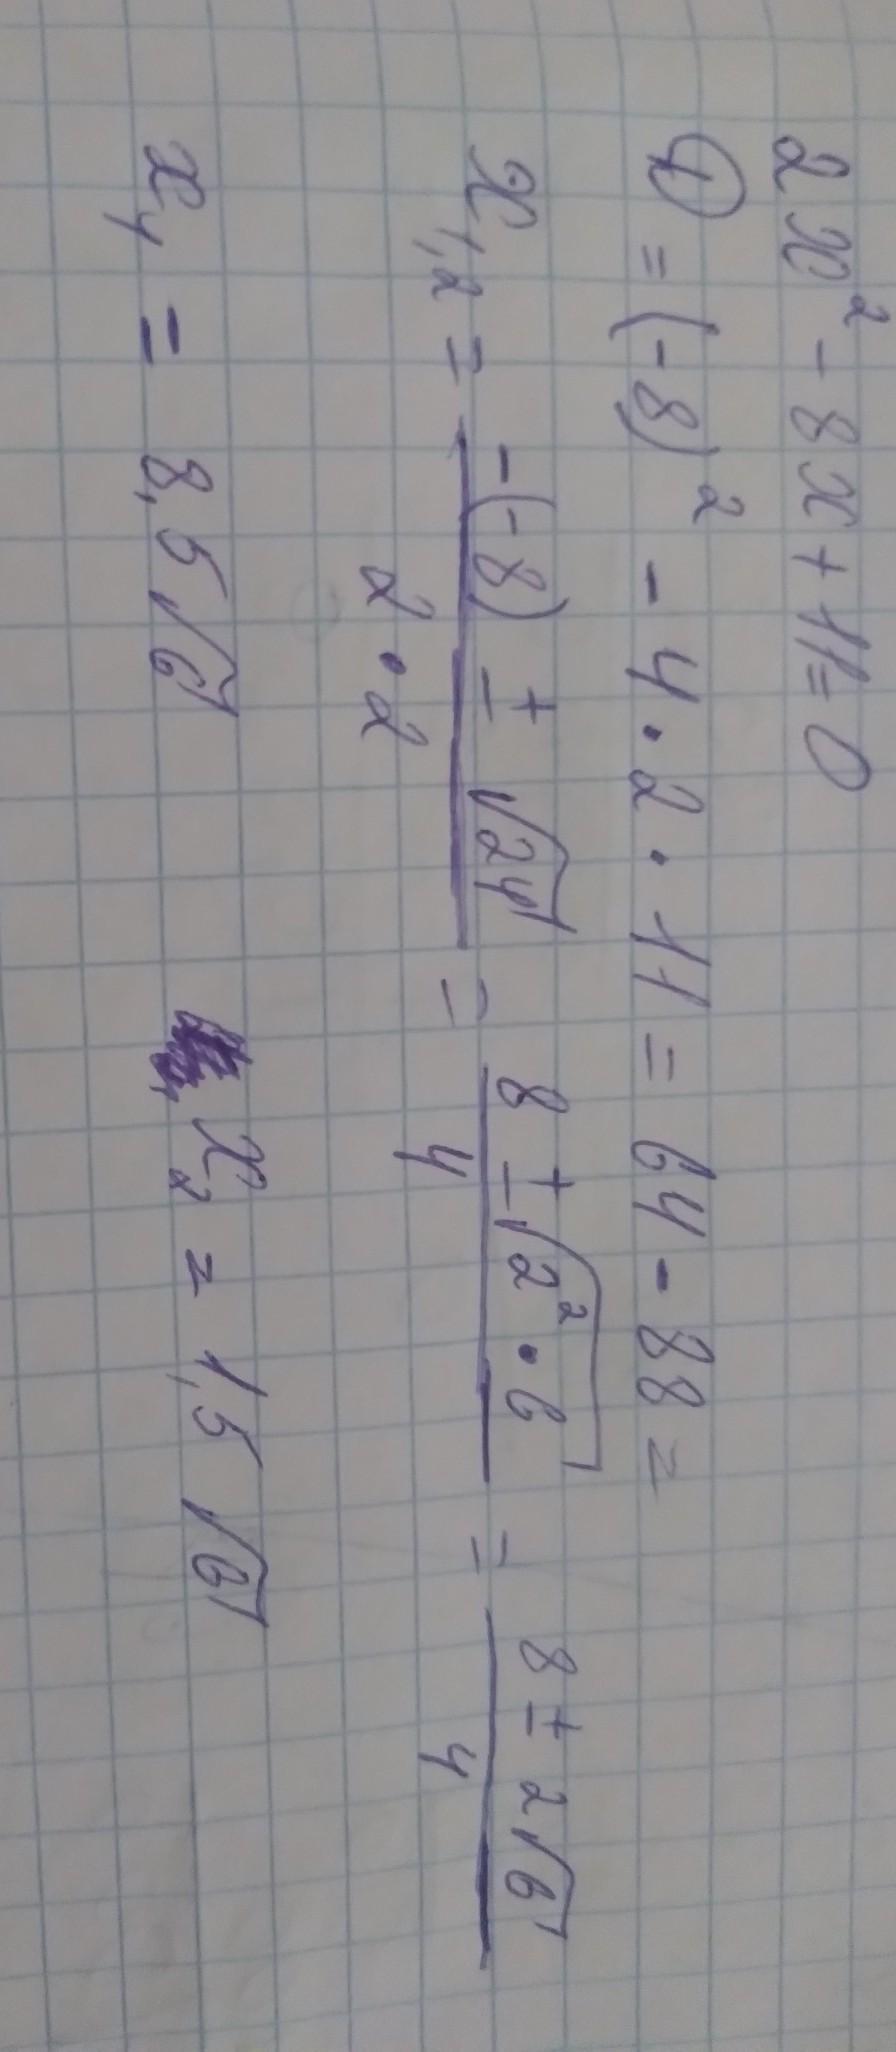 2x² - 8x + 11 = 0
① = (-8)² - 4 · 2 · 11 = 64 - 88 =
x₁,₂ = (-(-8) ± √24) / (2 · 2) = (8 ± √(2² · 6)) / 4 = (8 ± 2√6) / 4
x₁ = 8,5√6 x₂ = 1,5√6